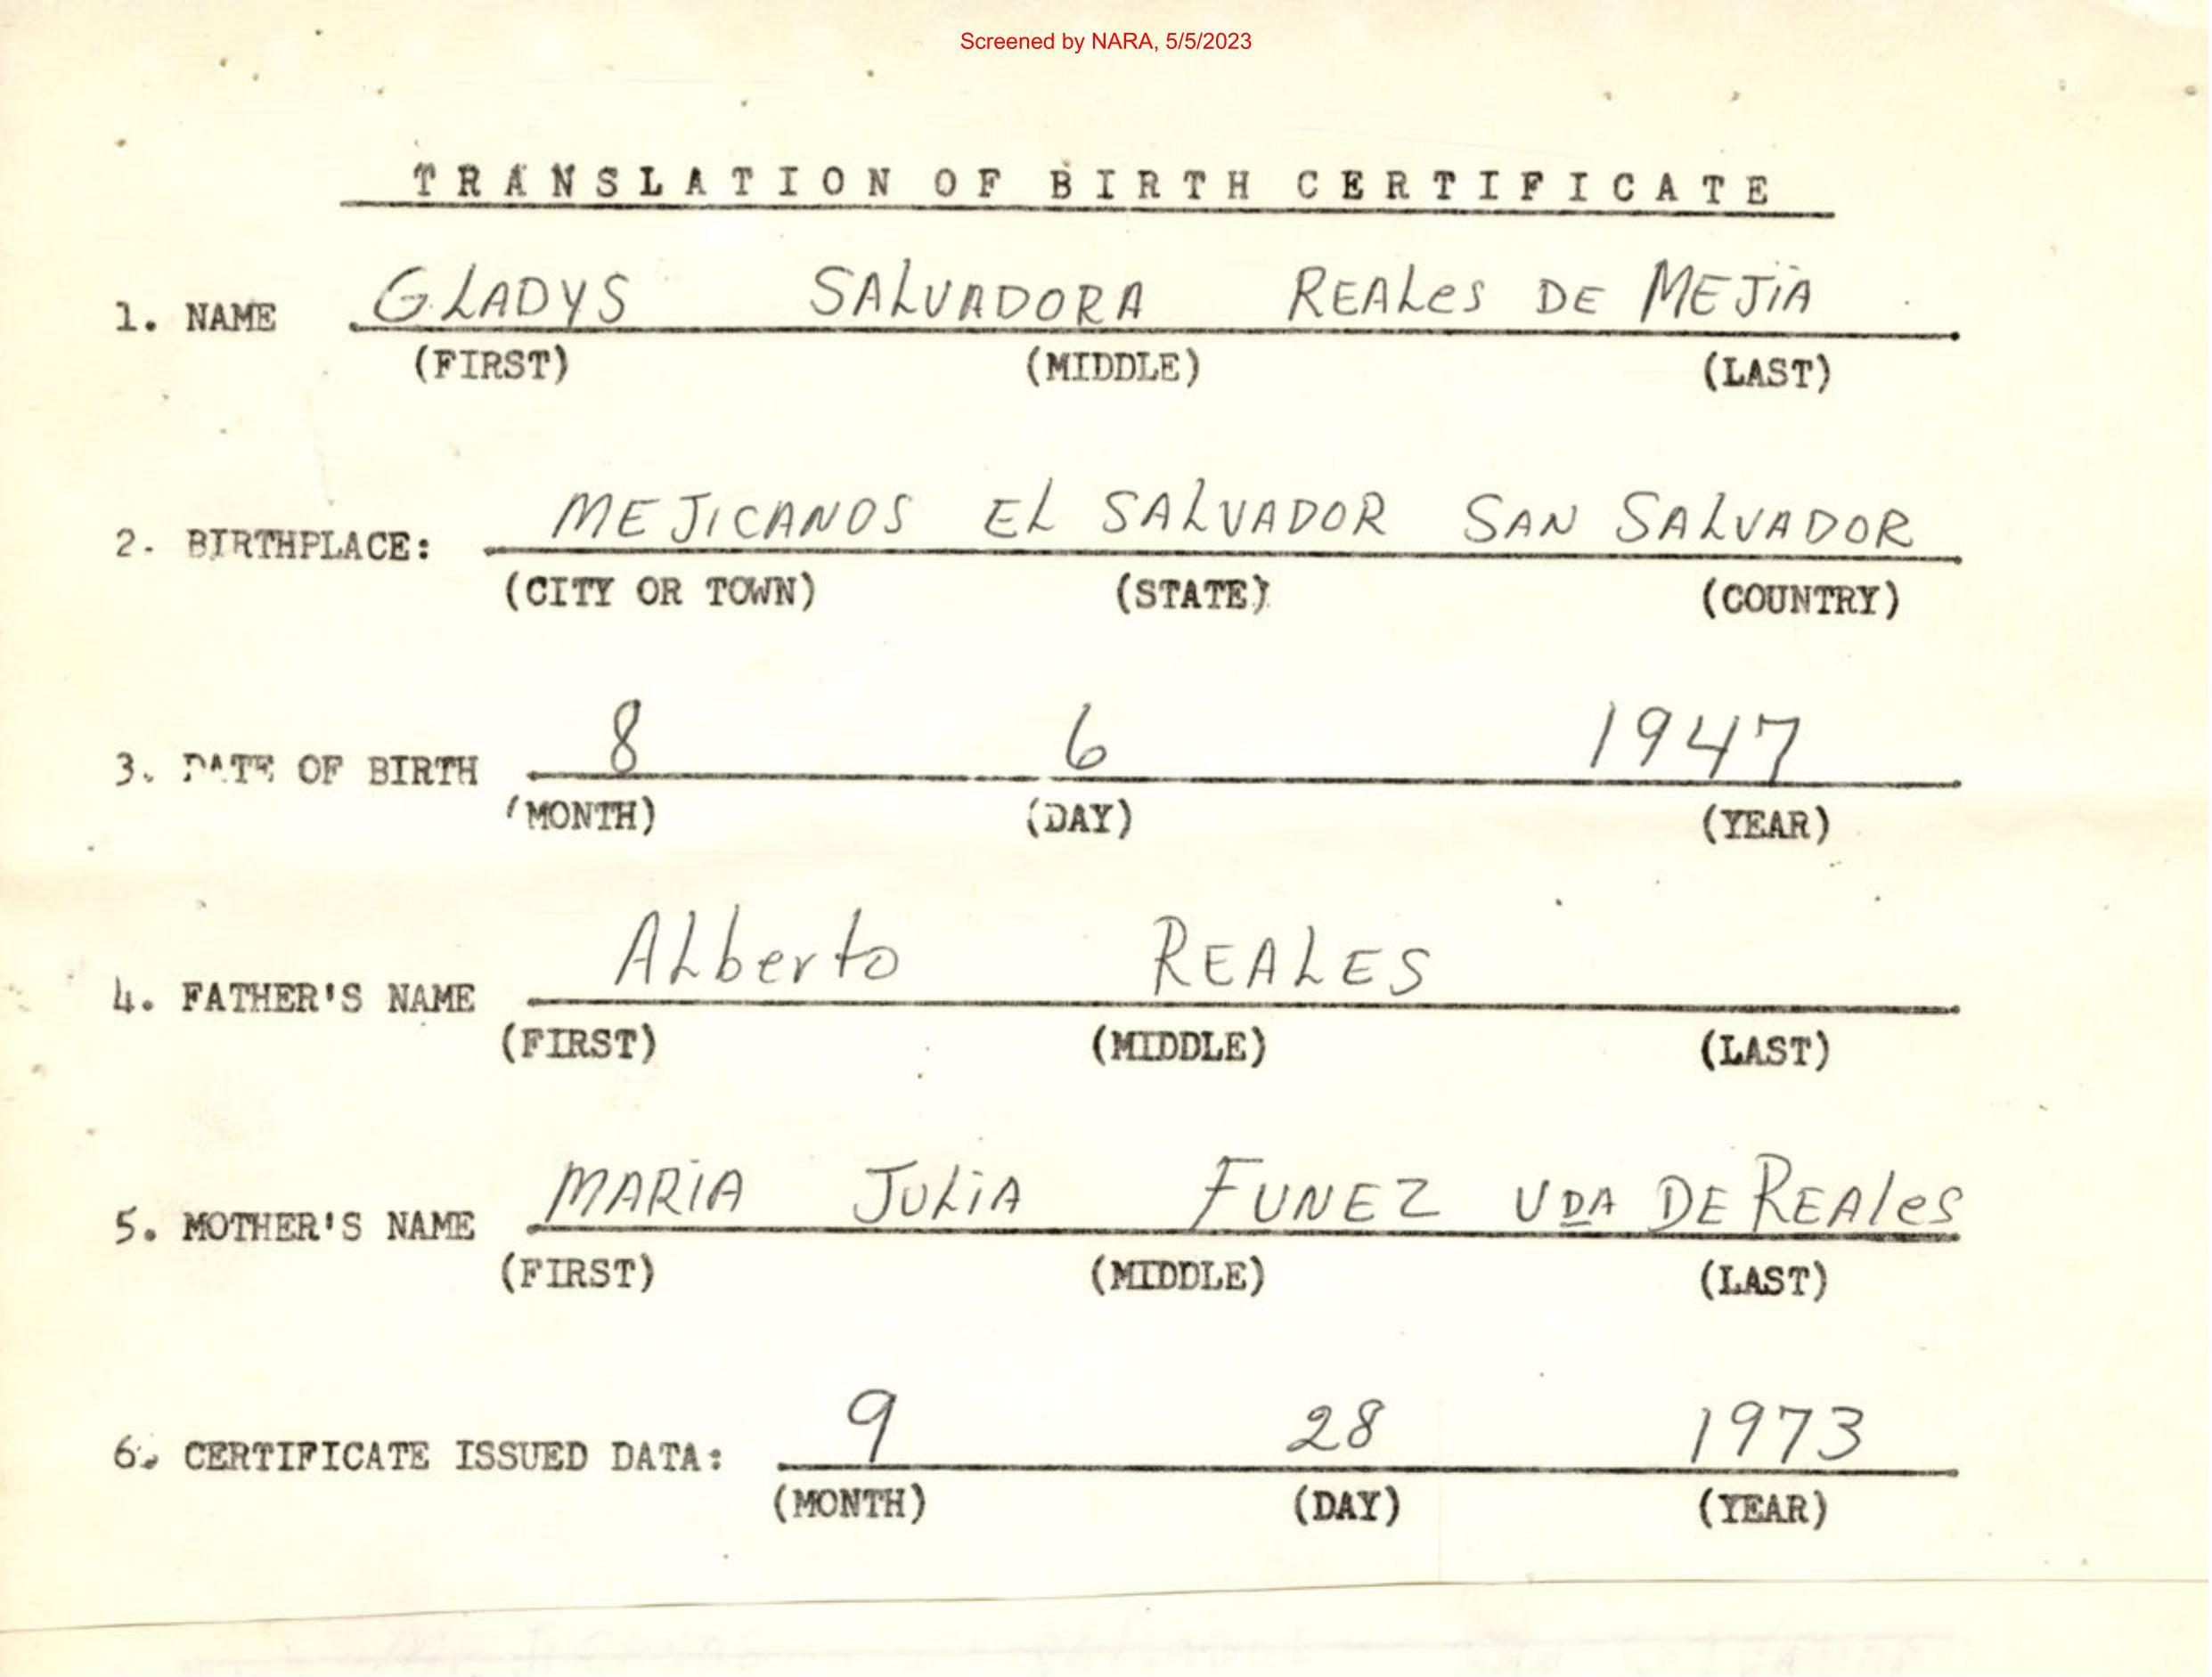 Screened by NARA, 5/5/2023
TRANSLATION OF BIRTH CERTIFICATE
1. NAME GLADYS SALVADORA REALes DE MEJIA
(FIRST) (MIDDLE) (LAST)
2. BIRTHPLACE: MEJICANOS EL SALVADOR SAN SALVADOR
(CITY OR TOWN) (STATE) (COUNTRY)
3. DATE OF BIRTH 8 6 1947
(MONTH) (DAY) (YEAR)
4. FATHER'S NAME ALberto REALES
(FIRST) (MIDDLE) (LAST)
5. MOTHER'S NAME MARIA JULIA FUNEZ VDA DE REAles
(FIRST) (MIDDLE) (LAST)
6. CERTIFICATE ISSUED DATA: 9 28 1973
(MONTH) (DAY) (YEAR)